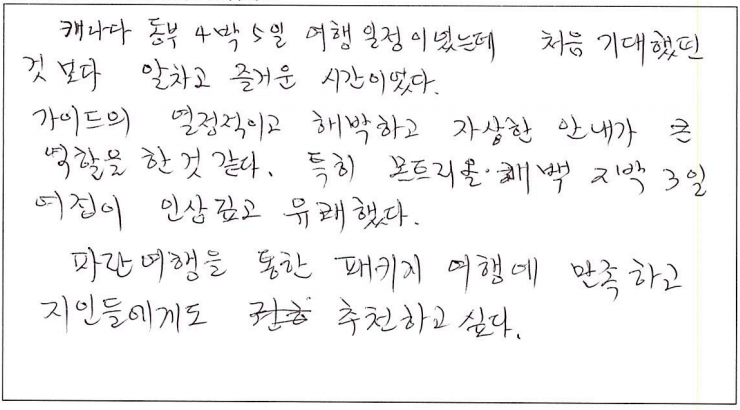 캐나다 동부 4박5일 여행 일정이었는데 처음 기대했던
것 보다 알차고 즐거운 시간이었다.
가이드의 열정적이고 해박하고 자상한 안내가 큰
역할을 한 것 같다. 특히 몬트리올·퀘백 2박 3일
여정이 인상깊고 유쾌했다.
파란여행을 통한 패키지 여행에 만족하고
지인들에게도 추천하고 싶다.